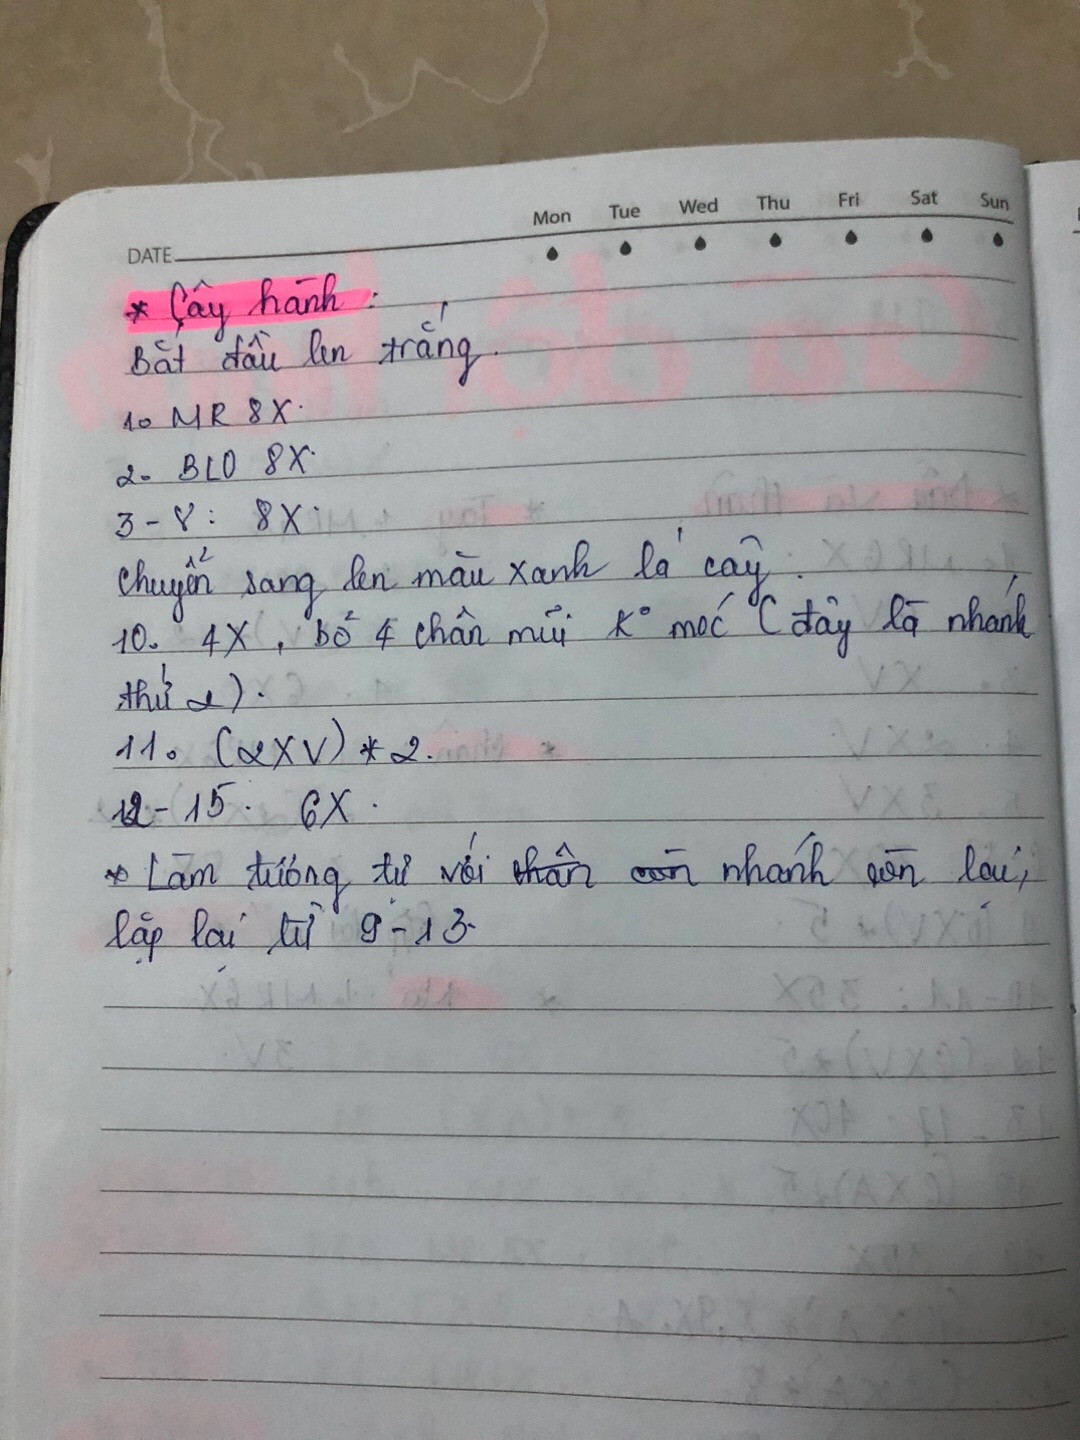 Mon Tue Wed Thu Fri Sat Sun
DATE
* Cây hành :
Bắt đầu len trắng.
1. MR 8X.
2. BLO 8X.
3-8: 8X.
chuyển sang len màu xanh lá cây.
10. 4X, bỏ 4 chân mũi K° móc (đây là nhánh
thứ 2).
11. (2XV)*2.
12-15. 6X.
* Làm tương tự với nhánh còn lại,
lặp lại từ 9-13.